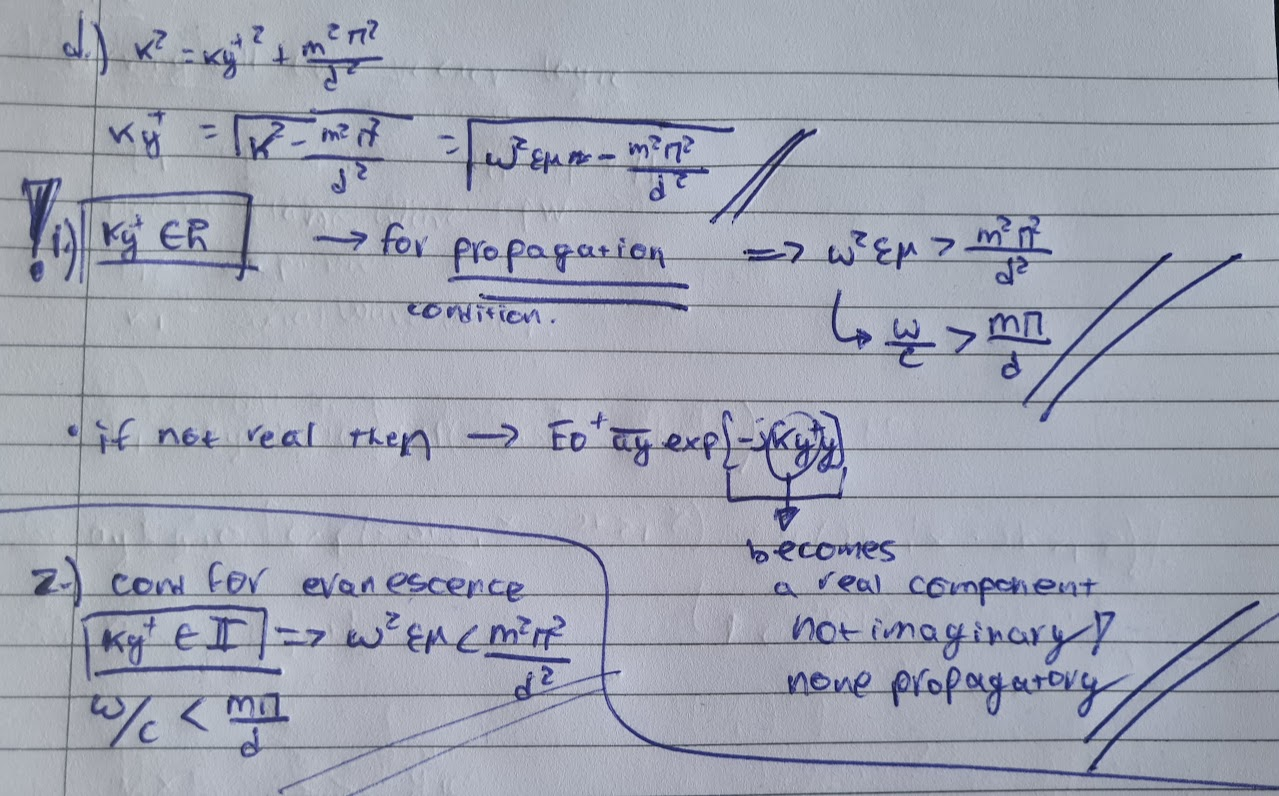 d.) k² = ky⁺² + m²π²/d²
ky⁺ = √(k² - m²π²/d²) = √(ω²εμ - m²π²/d²)
! i.) ky⁺ ∈ ℝ → for propagation condition. => ω²εμ > m²π²/d²
↳ ω/c > mπ/d
• if not real then → E0⁺ a̅y exp{-j(ky⁺)y}
becomes
a real component
not imaginary!
none propagatory
2.) cond for evanescence
ky⁺ ∈ II => ω²εμ < m²π²/d²
ω/c < mπ/d